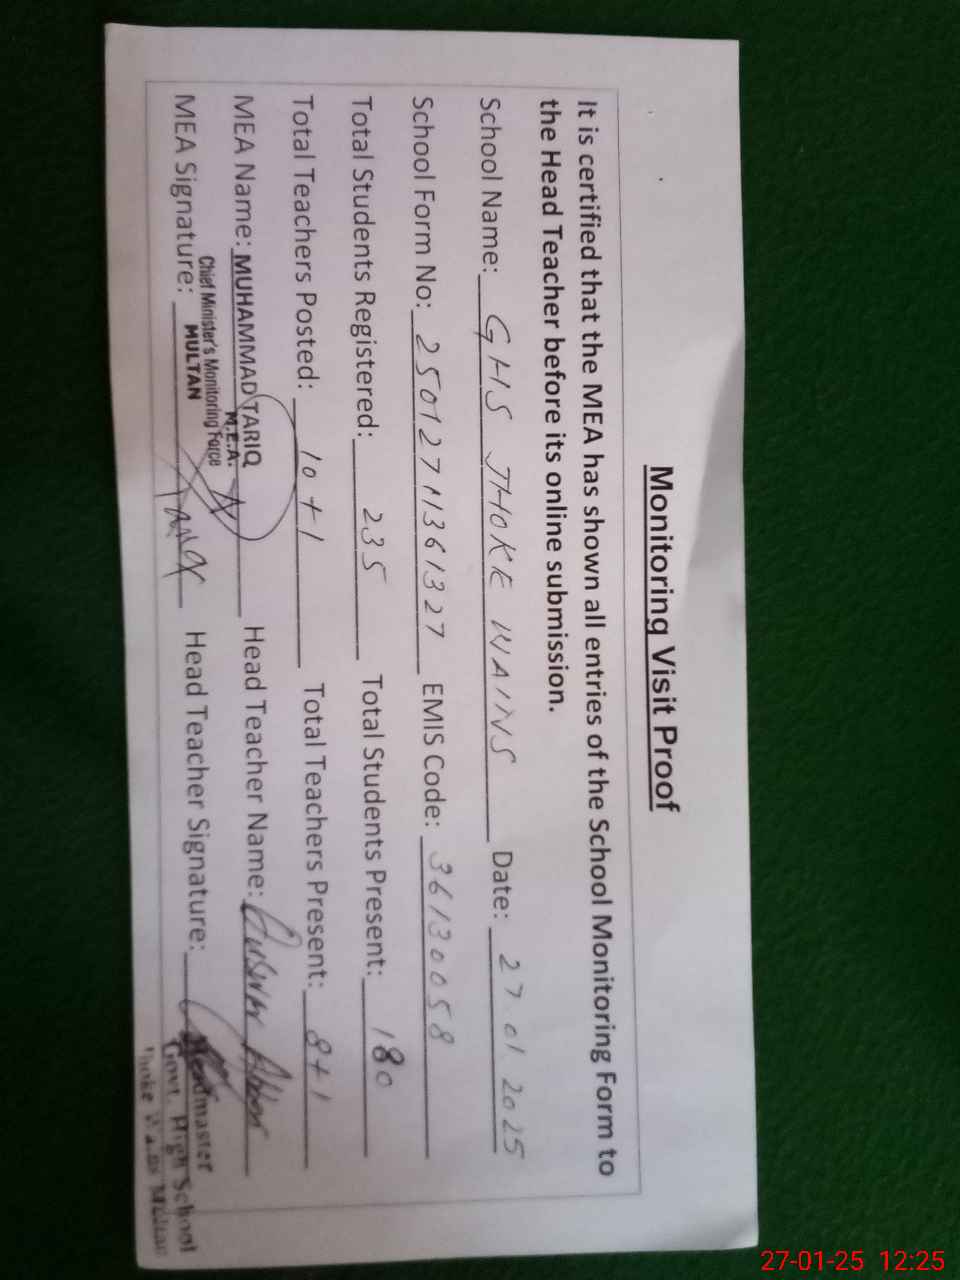 Monitoring Visit Proof
It is certified that the MEA has shown all entries of the School Monitoring Form to
the Head Teacher before its online submission.
School Name: GHS JHOKE WAINS Date: 27.01.2025
School Form No: 25012711361327 EMIS Code: 36130058
Total Students Registered: 235 Total Students Present: 180
Total Teachers Posted: 10+1 Total Teachers Present: 8+1
MEA Name: MUHAMMAD TARIQ Head Teacher Name:
M.E.A.
Chief Minister's Monitoring Force
MULTAN
MEA Signature: Head Teacher Signature:
Headmaster
Govt. High School
Jhoke Wains Multan
27-01-25 12:25